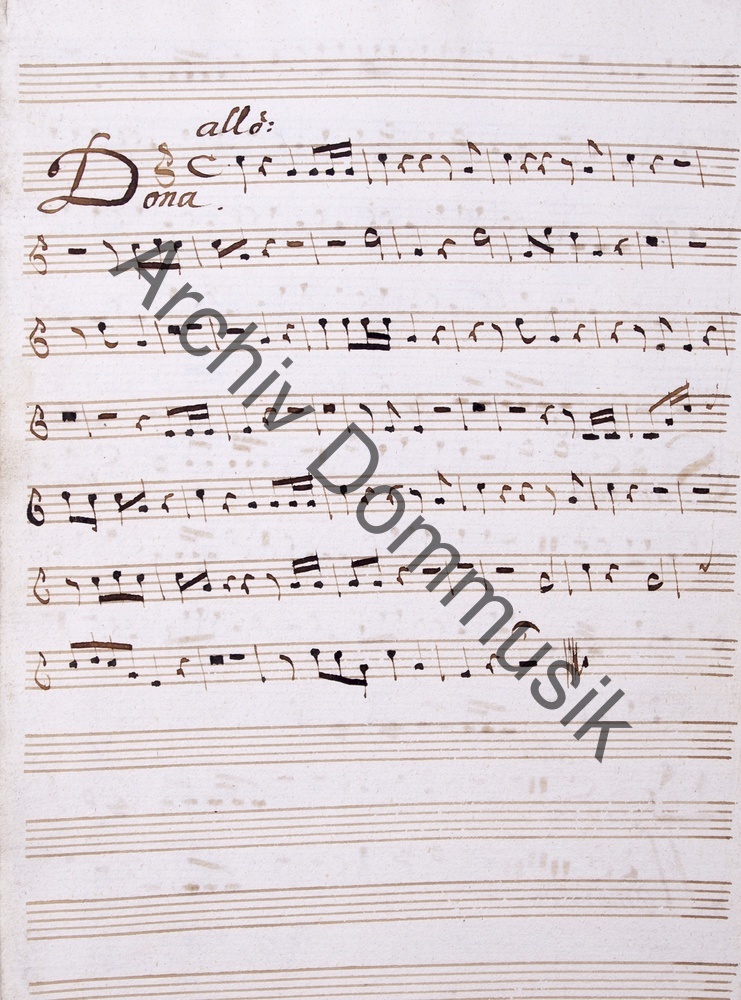 allo:
Dona.
Archiv Dommusik